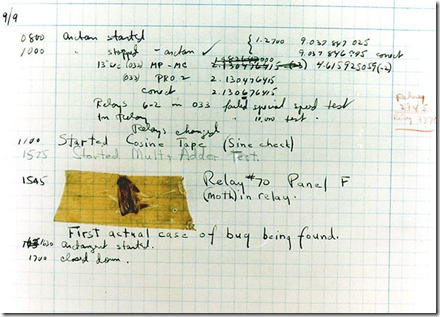 9/9
0800 Antan started
1000 " stopped - antan ✓ { 1.2700 9.037 847 025
9.037 846 995 conect
13"UC (032) MP-MC 4.615925059(-2)
(033) PRO 2 2.130476415
conect 2.130676415
Relays 6-2 in 033 failed special speed test
In Relay " 10,000 test.
Relays changed
1100 Started Cosine Tape (Sine check)
1525 Started Mult+Adder Test.
1545 Relay #70 Panel F
(Moth) in relay.
First actual case of bug being found.
antangent started.
1700 closed down.
Relay
2145